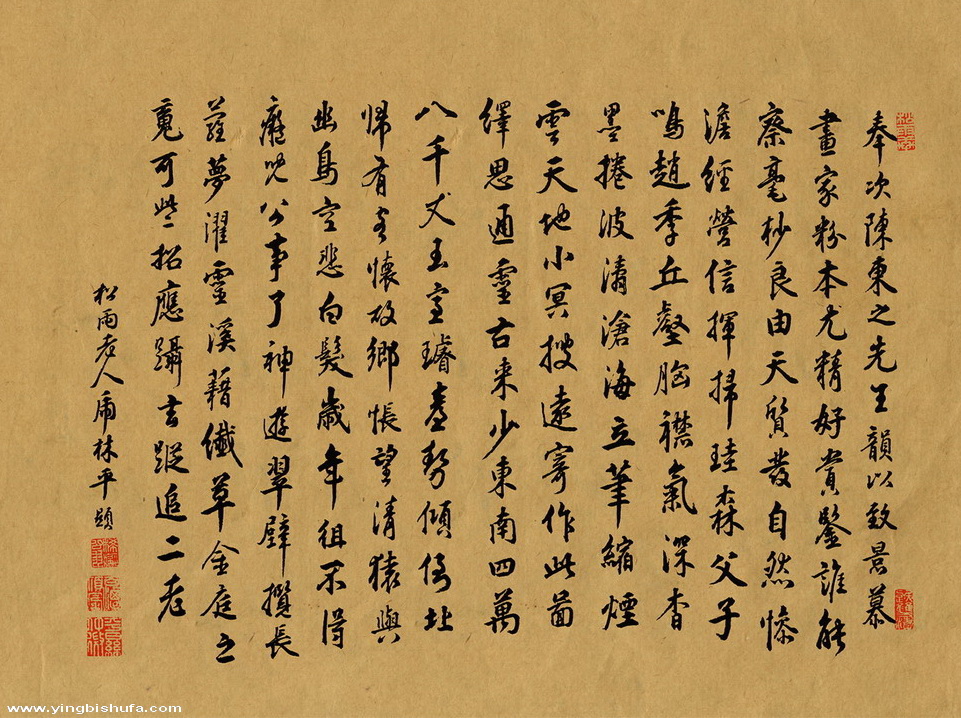 奉次陳東之先生韻以致景慕
畫家粉本尤精好賞鑒誰能
察毫杪良由天質發自然慘
澹經營信揮掃珪森父子
鳴趙季丘壑胸襟氣深杳
墨捲波濤滄海立筆縮煙
雲天地小冥搜遠寄作此啚
繹思通靈古來少東南四萬
八千丈玉室璿臺勢傾倚北
歸有客懷故鄉悵望清猿與
幽鳥空悲白髮歲年徂不得
癡兒公事了神遊翠壁攬長
蘿夢濯靈溪藉纖草金庭之
菟可些招應躡玄蹤追二老
松雨老人 林平題
www.yingbishufa.com